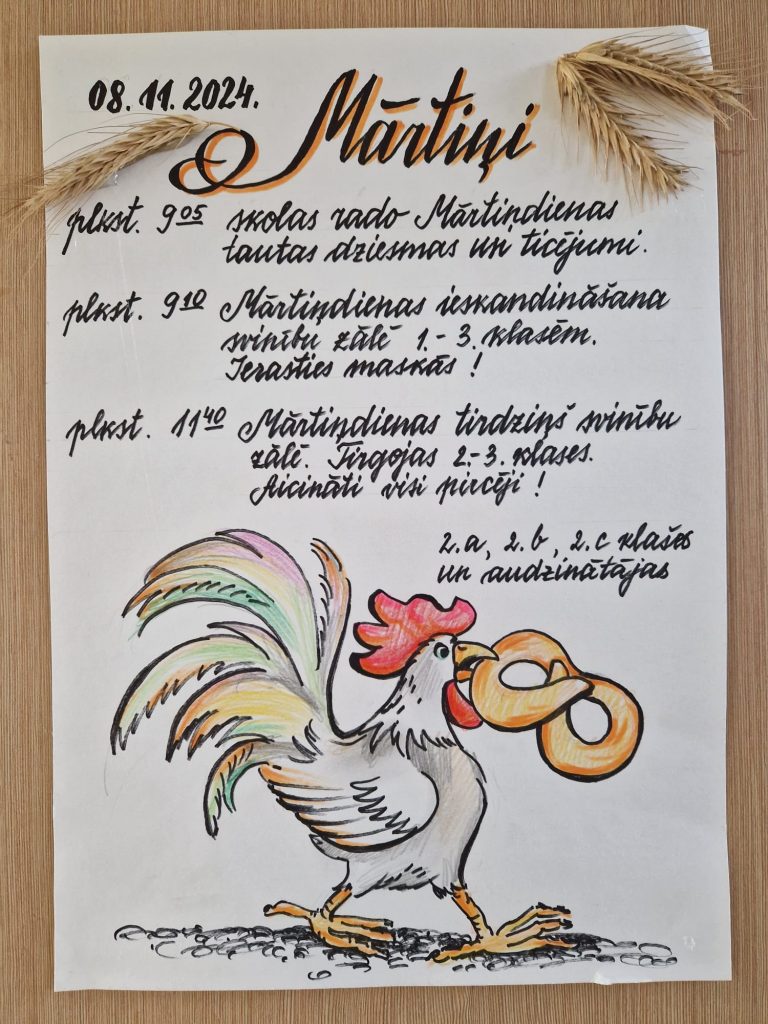 08.11.2024.
Mārtiņi
plkst. 9⁰⁵ skolas rado Mārtiņdienas
tautas dziesmas un ticējumi.
plkst. 9¹⁰ Mārtiņdienas ieskandināšana
svinību zālē 1.-3. klasēm.
Ierasties maskās!
plkst. 11⁴⁰ Mārtiņdienas tirdziņš svinību
zālē. Tirgojas 2.-3. klases.
Aicināti visi pircēji!
2.a, 2.b, 2.c klašes
un audzinātājas